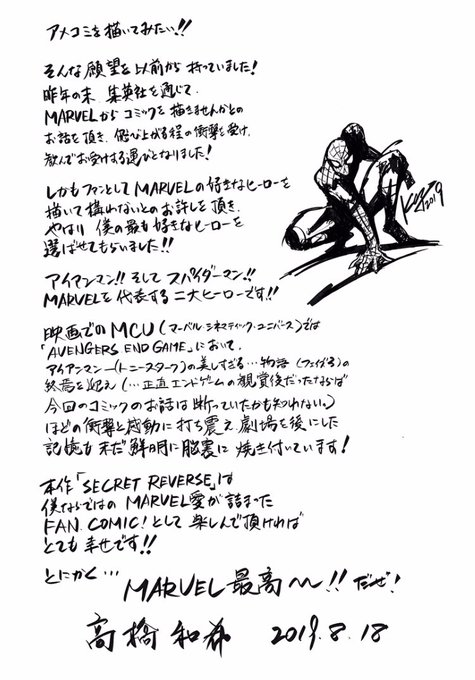 アメコミを描いてみたい!!
そんな願望を以前から持っていました!
昨年の末、集英社を通じて、
MARVELからコミックを描きませんかとの
お話を頂き、飛び上がる程の衝撃を受け、
歓んでお受けする運びとなりました!
しかもファンとしてMARVELの好きなヒーローを
描いて構わないとのお許しを頂き、
やはり僕の最も好きなヒーローを
選ばせてもらいました!!
アイアンマン!!そしてスパイダーマン!!
MARVELを代表する二大ヒーローです!!
映画でのMCU(マーバルシネマティック・ユニバース)では
「AVENGERS END GAME」において、
アイアンマン―(トニースターク)の美しすぎる…物語(フェイズ3)の
終焉を迎え(…正直エンドゲームの観賞後だったならば
今回のコミックのお話は断っていたかも知れない。)
ほどの衝撃と感動に打ち震え劇場を後にした
記憶も未だ鮮明に脳裏に焼き付いています!
本作「SECRET REVERSE」は
僕ならではのMARVEL愛が詰まった
FAN COMIC!として楽しんで頂ければ
とても幸せです!!
とにかく…
MARVEL最高〜!!だぜ!
高橋和希 2019.8.18
2019